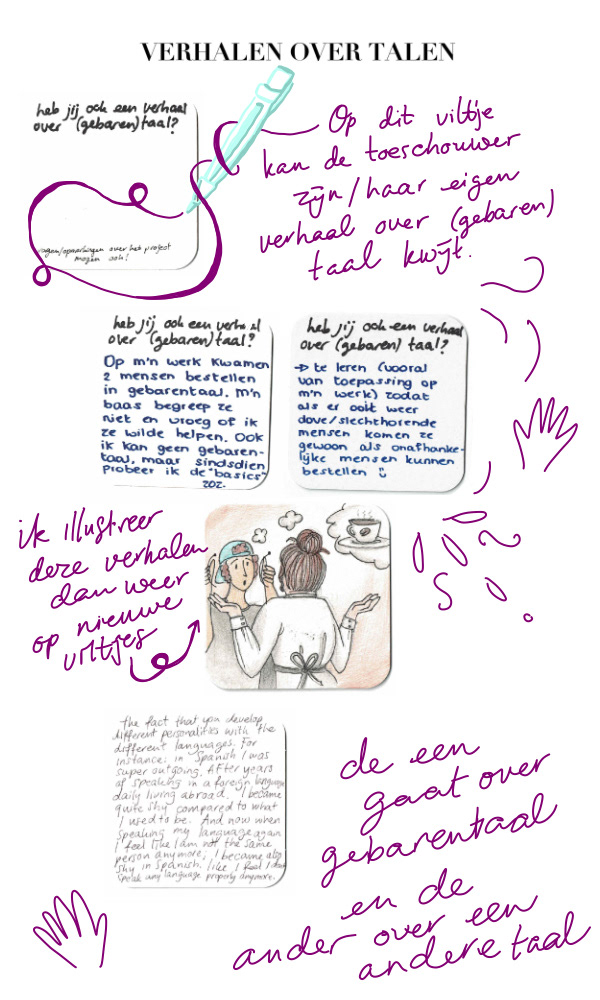 VERHALEN OVER TALEN
heb jij ook een verhaal
over (gebaren)taal?
vragen/opmerkingen over het project
mogen ook!
Op dit viltje
kan de toeschouwer
zijn/haar eigen
verhaal over (gebaren)
taal kwijt.
heb jij ook een verhaal
over (gebaren) taal?
Op m'n werk kwamen
2 mensen bestellen
in gebarentaal. M'n
baas begreep ze
niet en vroeg of ik
ze wilde helpen. Ook
ik kan geen gebaren-
taal, maar sindsdien
probeer ik de "basics"
zoz.
heb jij ook een verhaal
over (gebaren) taal?
→ te leren (vooral
van toepassing op
m'n werk) zodat
als er ooit weer
dove/slechthorende
mensen komen ze
gewoon als onafhanke-
lijke mensen kunnen
bestellen
ik illustreer
deze verhalen
dan weer
op nieuwe
viltjes
The fact that you develop
different personalities with the
different languages. For
instance: in Spanish I was
super outgoing. After years
of speaking in a foreign language
daily living abroad, I became
quite shy compared to what
I used to be. And now when
speaking my language again
i feel like I am not the same
person anymore; I became also
shy in Spanish. like I feel I don't
speak any language properly anymore.
de een
gaat over
gebarentaal
en de
ander over een
andere taal